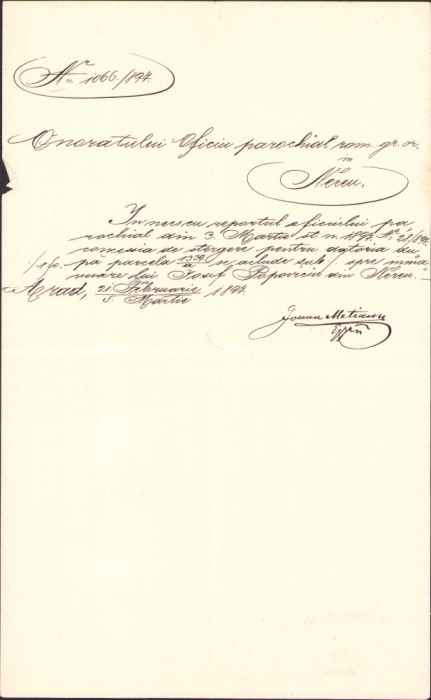 Nr 1066/894.
Onoratului Oficiu parochial rom. gr. or.
in
Nereu.
In necsu cu reportul oficiului pa
rochial din 3. Martie st. n. 1894 Nr 28/894
concesia de stergere pentru datoria du
/1 fo. pă parcela 1339 se aclude sub / spre
nuare lui Iosif Popoviciu din Nereu.
Arad, 21 Februarie 1894.
5. Martie
Ioan Metianu
Eppu